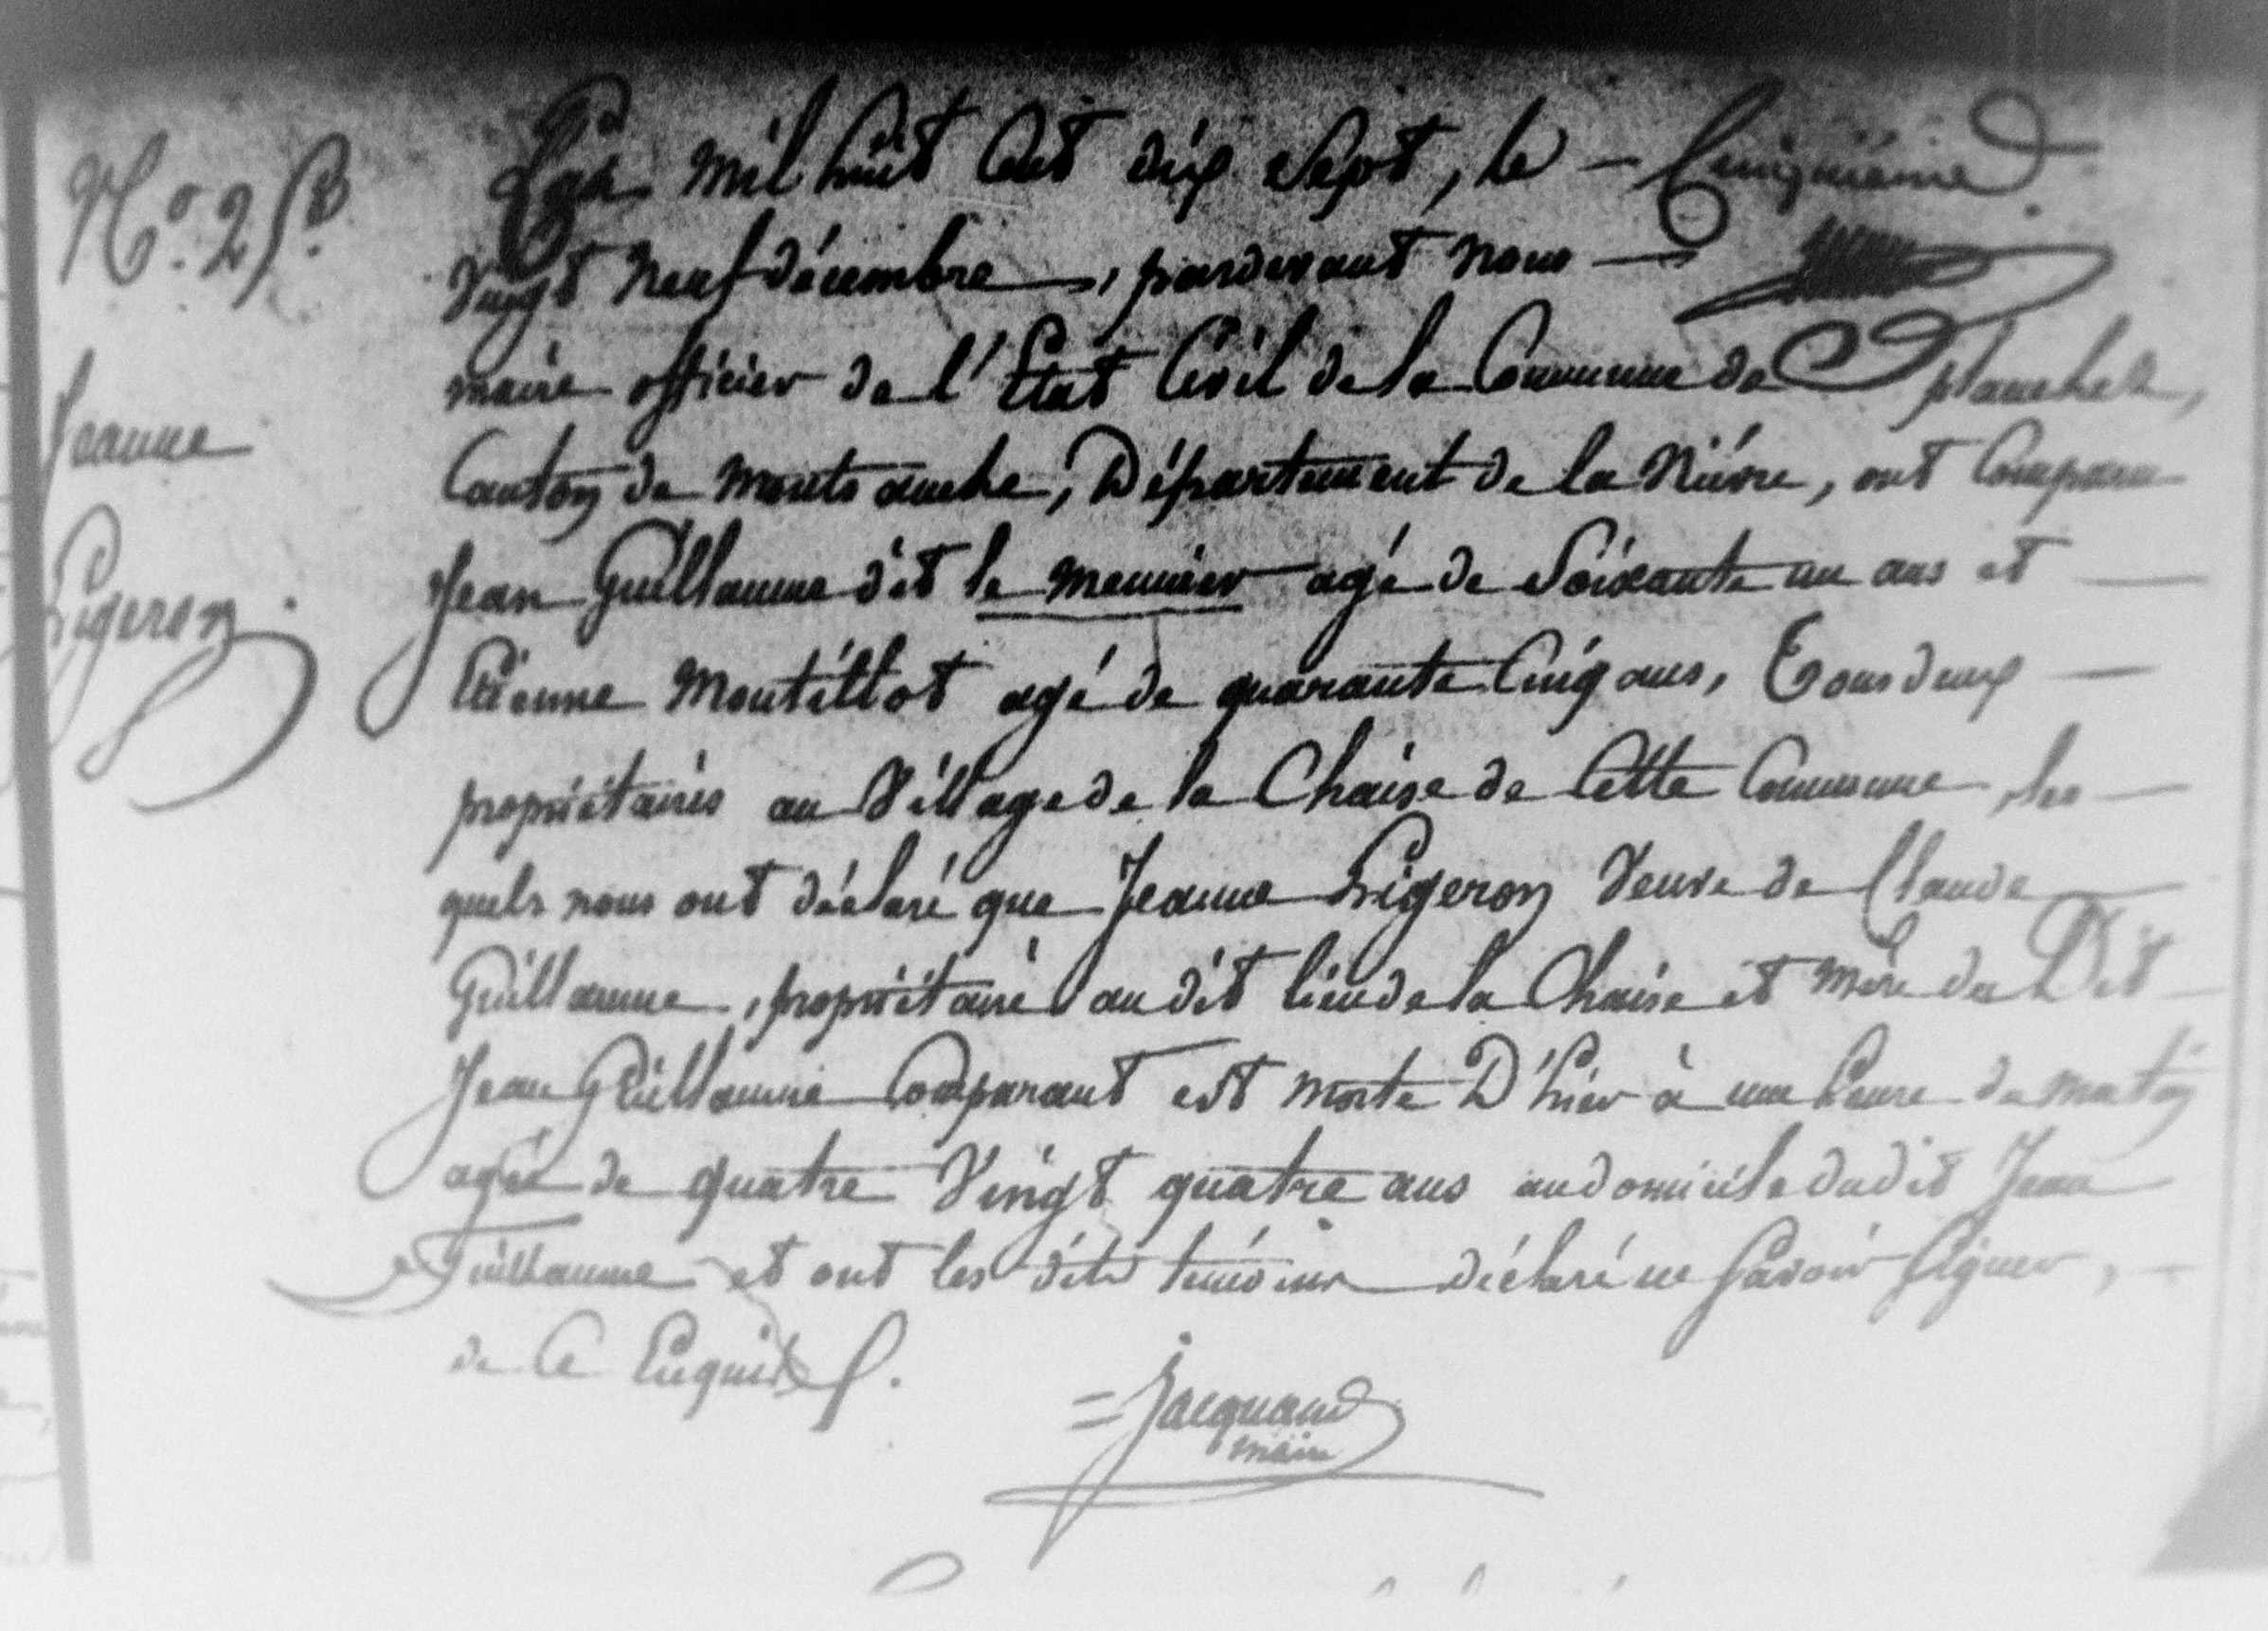 N.o 25.
Jeanne
Pigeron.
L'an mil huit Cent dix Sept, le –
Vingt Neuf décembre, pardevant nous —
maire officier de l'Etat Civil de la Commune de planchez,
Canton de montsauche, Département de la Nièvre, ont Comparu
Jean Guillaume dit le meunier agé de Soixante un ans et —
Etienne Montillot agé de quarante Cinq ans, Tous deux —
propriétaires au Village de la Chaise de Cette Commune, les —
quels nous ont déclaré que Jeanne Pigeron Veuve de Claude —
Guillaume, propriétaire au dit lieu de la Chaise et mère du Dit —
Jean Guillaume Comparant est morte D'hier à une heure du matin
agée de quatre Vingt quatre ans au domicile dudit Jean
Guillaume et ont les dits témoins déclaré ne Savoir Signer, —
de Ce Enquis.
= Jacquand
maire